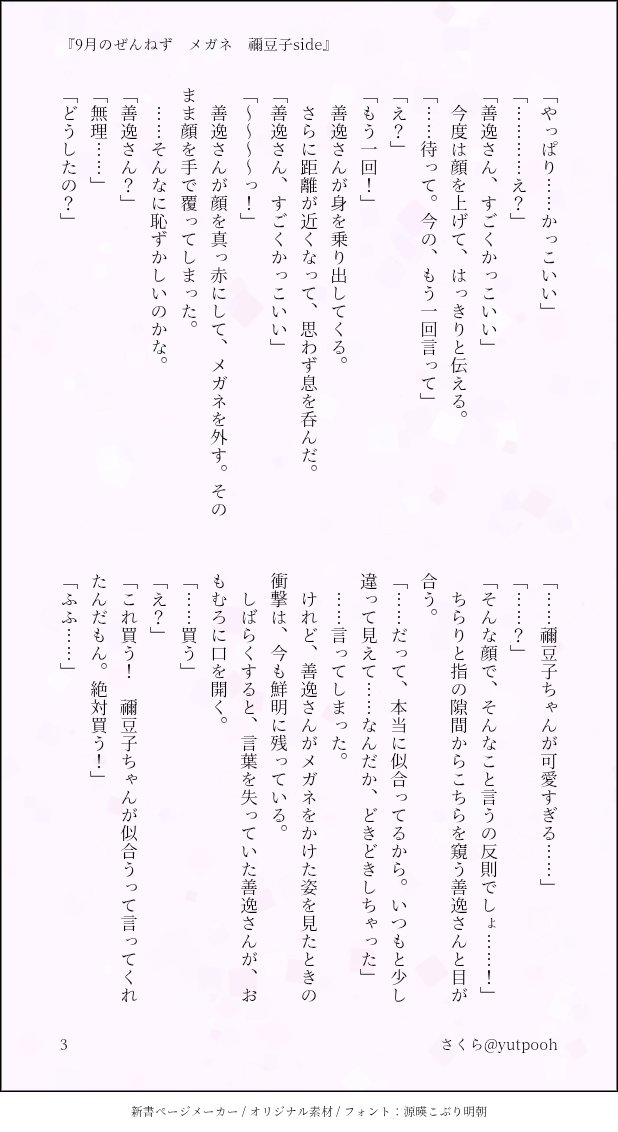 『9月のぜんねず　メガネ　禰豆子side』
「やっぱり……かっこいい」
「…………え？」
「善逸さん、すごくかっこいい」
　今度は顔を上げて、はっきりと伝える。
「……待って。今の、もう一回言って」
「え？」
「もう一回！」
　善逸さんが身を乗り出してくる。
　さらに距離が近くなって、思わず息を呑んだ。
「善逸さん、すごくかっこいい」
「〜〜〜〜っ！」
　善逸さんが顔を真っ赤にして、メガネを外す。その
まま顔を手で覆ってしまった。
　……そんなに恥ずかしいのかな。
「善逸さん？」
「無理……」
「どうしたの？」
「……禰豆子ちゃんが可愛すぎる……」
「……？」
「そんな顔で、そんなこと言うの反則でしょ……！」
　ちらりと指の隙間からこちらを窺う善逸さんと目が
合う。
「……だって、本当に似合ってるから。いつもと少し
違って見えて……なんだか、どきどきしちゃった」
　……言ってしまった。
　けれど、善逸さんがメガネをかけた姿を見たときの
衝撃は、今も鮮明に残っている。
　しばらくすると、言葉を失っていた善逸さんが、お
もむろに口を開く。
「……買う」
「え？」
「これ買う！　禰豆子ちゃんが似合うって言ってくれ
たんだもん。絶対買う！」
「ふふ……」
3
さくら@yutpooh
新書ページメーカー / オリジナル素材 / フォント：源暎こぶり明朝